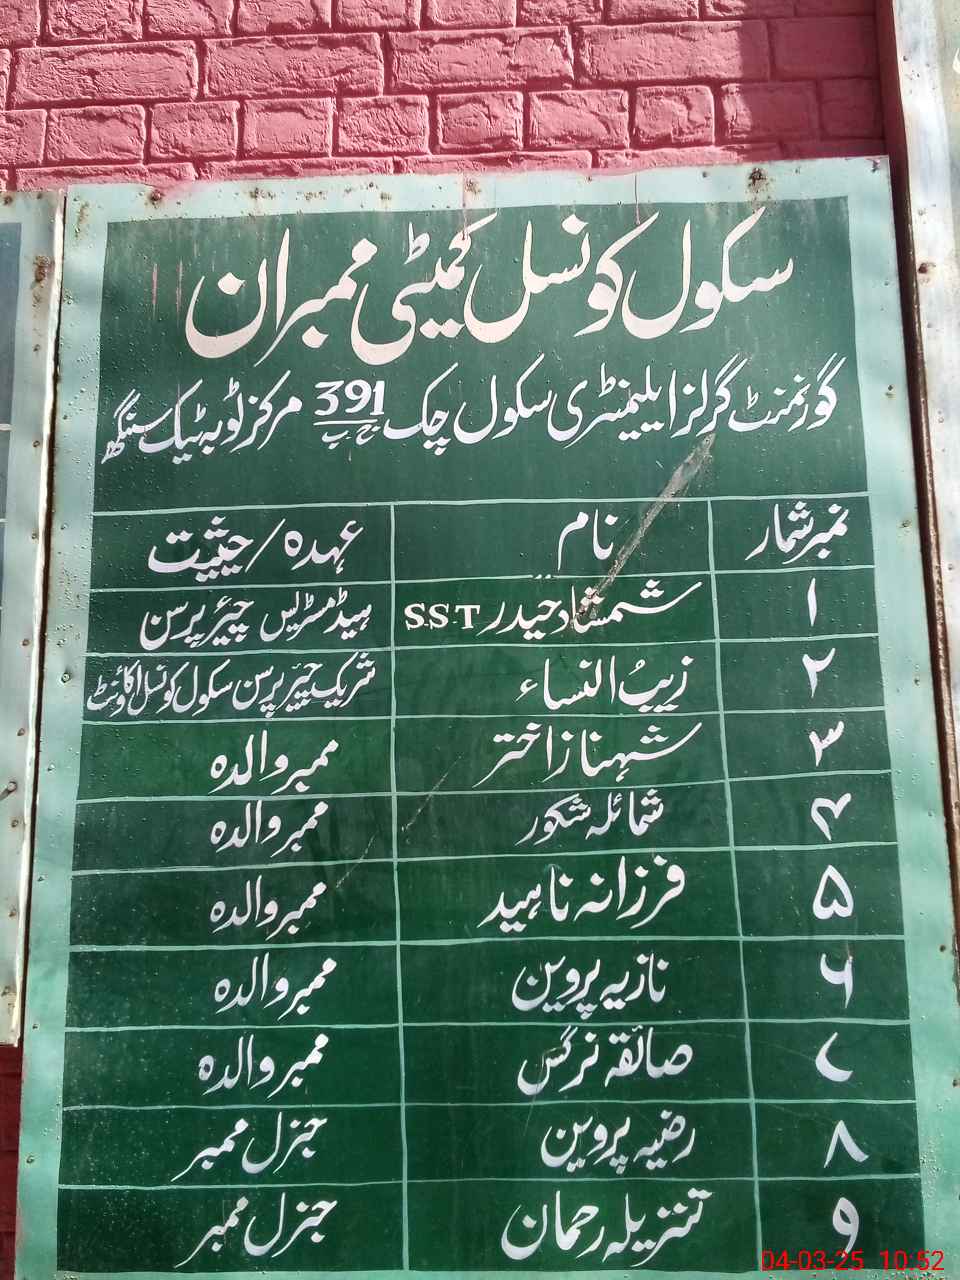 سکول کونسل کمیٹی ممبران
گورنمنٹ گرلز ایلیمنٹری سکول چک 391 ج ب مرکز ٹوبہ ٹیک سنگھ
نمبر شمار نام عہدہ / حیثیت
۱ شمشاد حیدر SST ہیڈ مسٹریس چیئر پرسن
۲ زیبُ النساء شریک چیئر پرسن سکول کونسل اکاؤنٹ
۳ شہناز اختر ممبر والدہ
۴ شمائلہ شکور ممبر والدہ
۵ فرزانہ ناہید ممبر والدہ
۶ نازیہ پروین ممبر والدہ
۷ صائقہ نرگس ممبر والدہ
۸ رضیہ پروین جنرل ممبر
۹ تنزیلہ رحمان جنرل ممبر
04-03-25 10:52